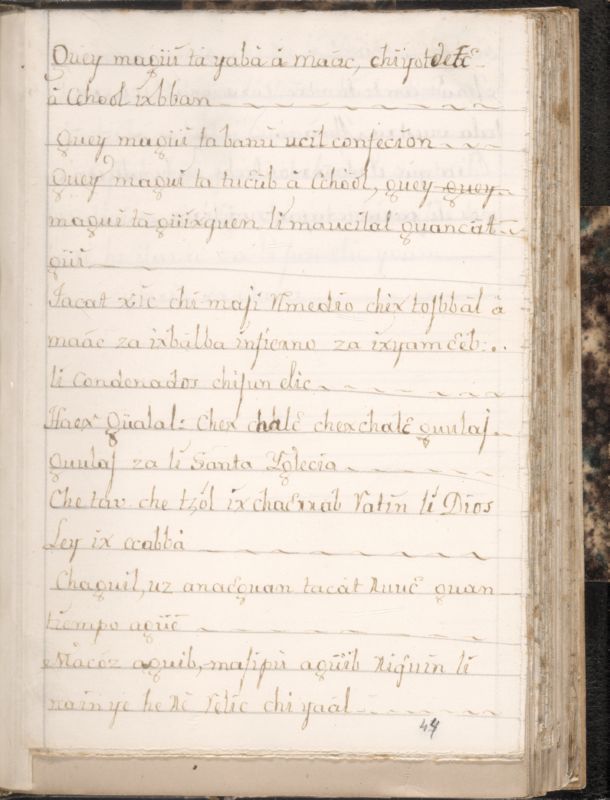 Quey maguí tá yabá á maác, chiyotdetꜫ
á Cchool ixbban
Quey maguí ta bami ucil confecion
Quey maguí ta tucub á Cchool, quey quey
maguí tá güixquen li maucilal quancat
güi
Jacat xic chi maji Rmedio chix tojbbal á
maác za ixbálba infierno za ixyamꜫeb:..
li Condenados chijun elic
Haex Qualal: Chex chalꜫ chexchalꜫ quulaj
quulaj za li Santa Yglecia
Che tav che tzól ix chaꜫrrab Vatin li Dios
Ley ix ccabbá
Chaquil, uz anaꜫquan tacat Ruuꜫ quan
tiempo agüꜫ
Macoz aquib, masipú aguib Riquin li
nain ye he Rꜫ Velic chi yaál
44